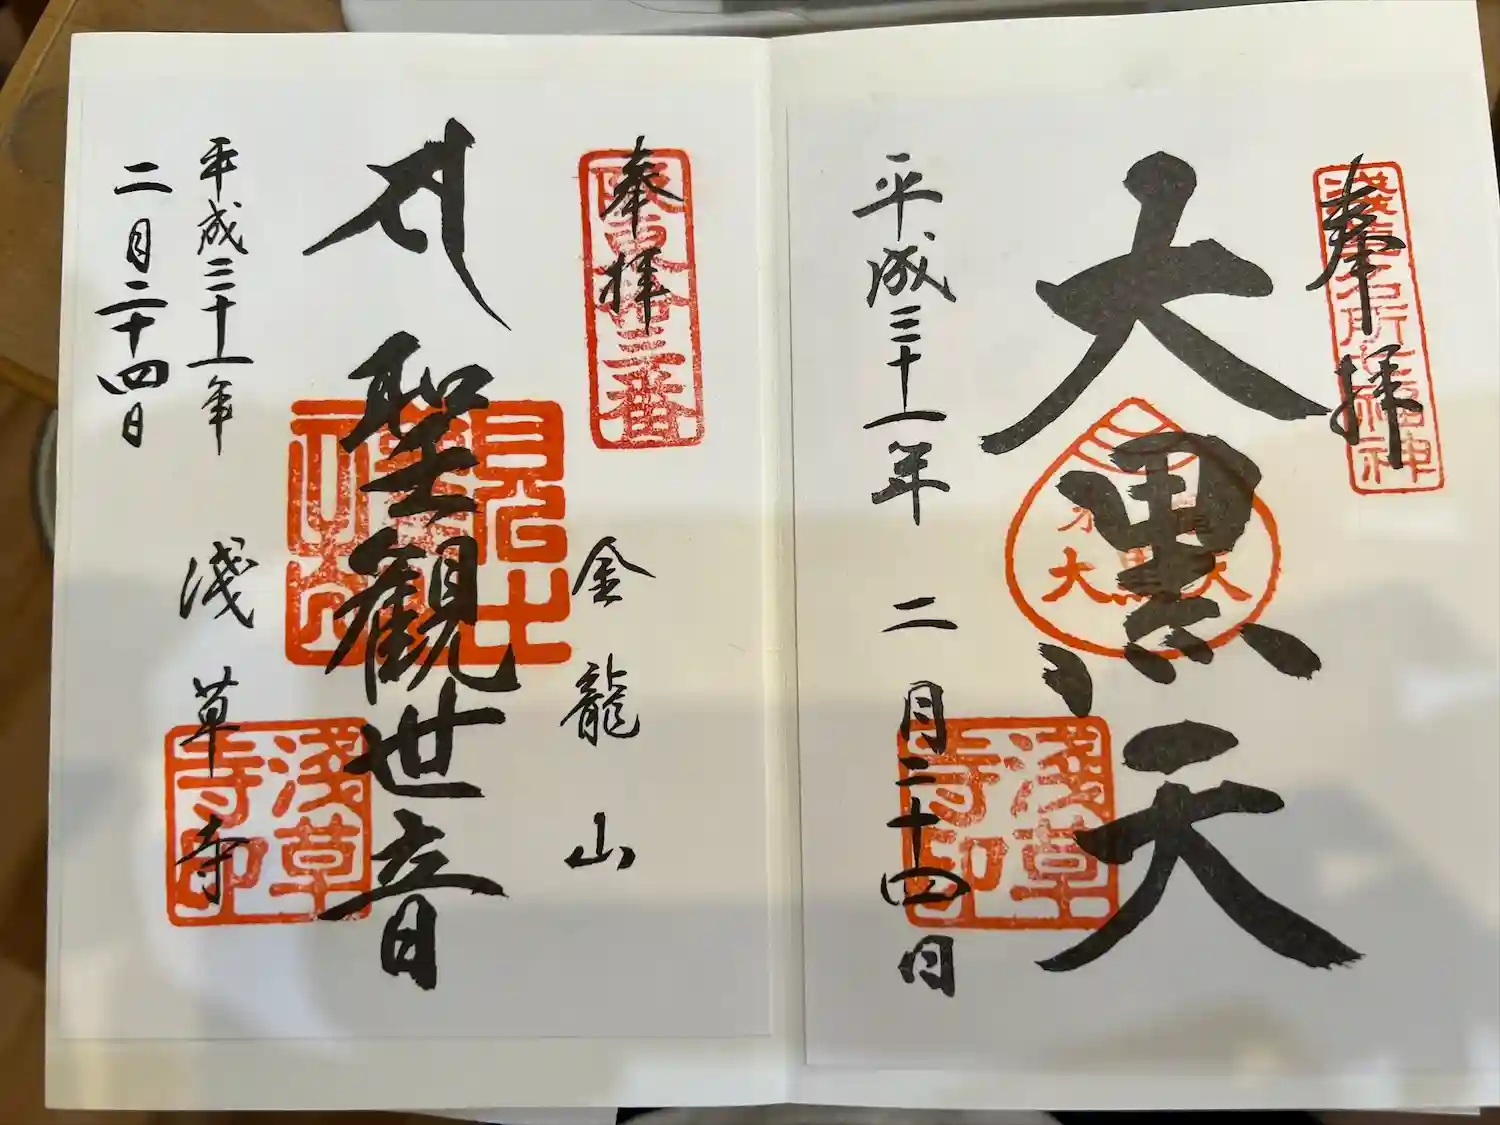 奉拝
浅草名所七福神
大黒天
大黒天
平成三十一年 二月二十四日
浅草寺印
奉拝
坂東十三番
金龍山
聖観世音
平成三十一年
二月二十四日
浅草寺
浅草寺印